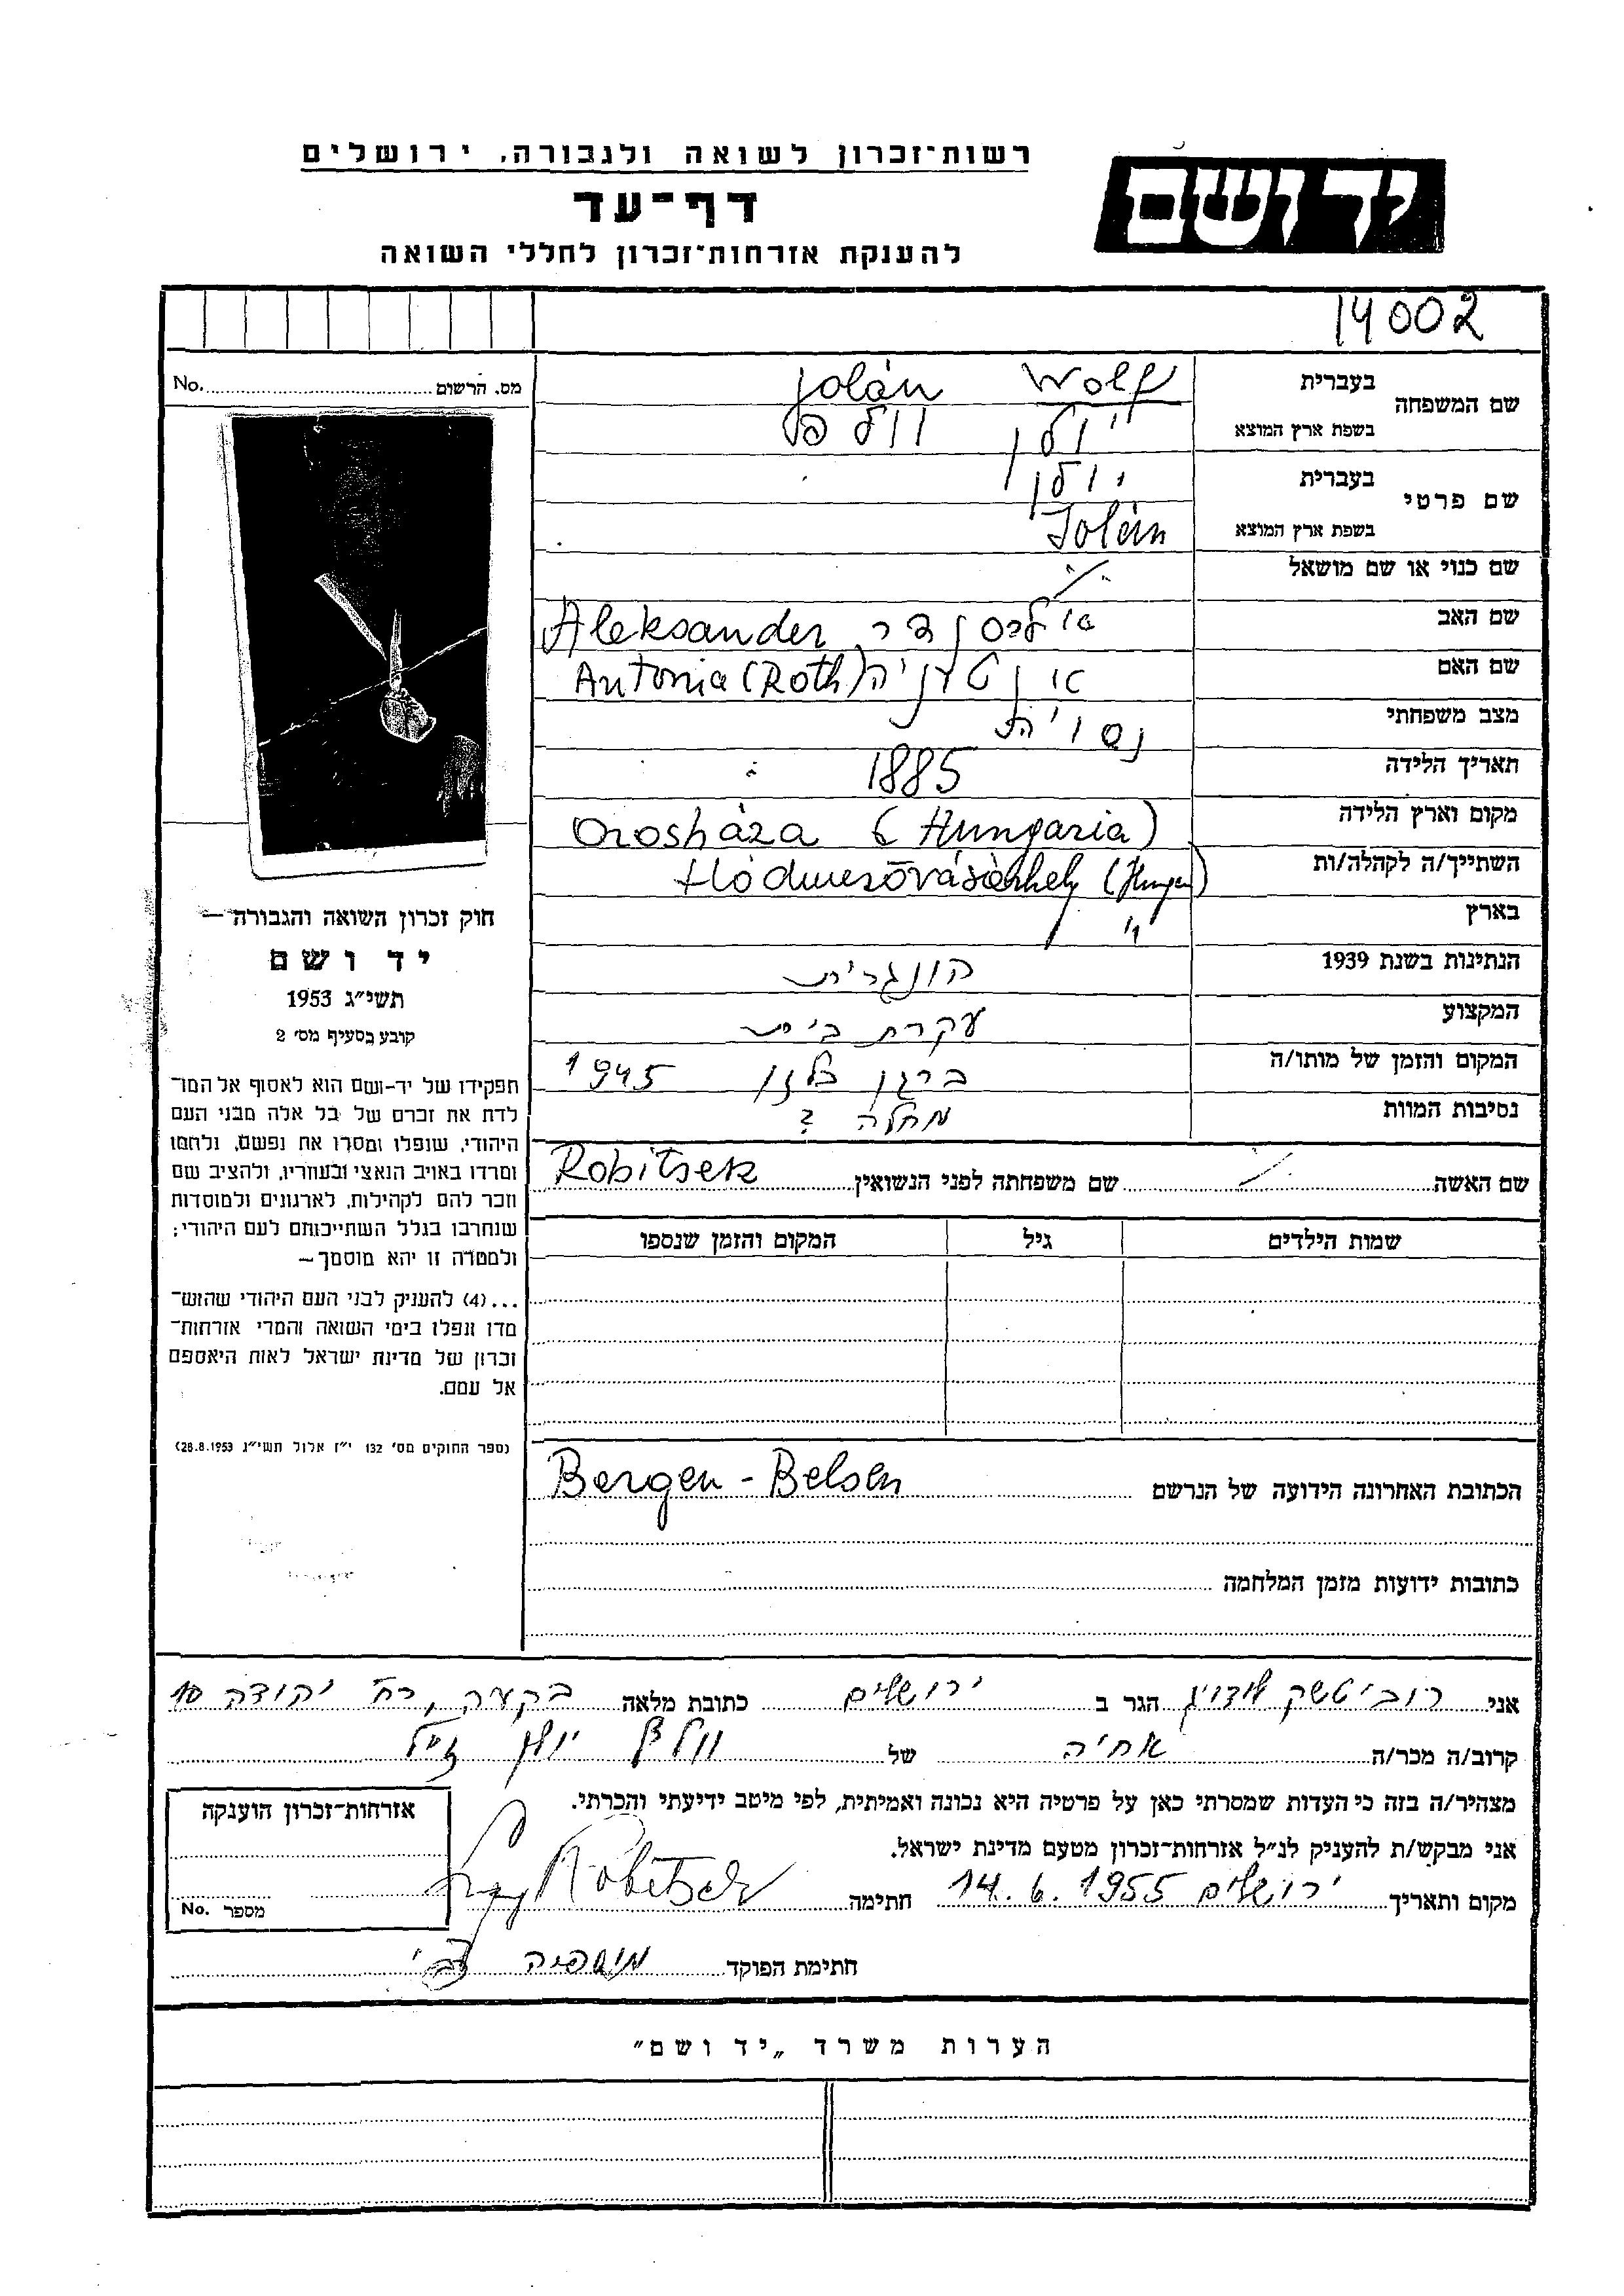 רשות־זכרון לשואה ולגבורה, ירושלים
יד ושם
דף־עד
להענקת אזרחות־זכרון לחללי השואה
14002
מס. הרשום No.
שם המשפחה בעברית Wolf Jolán
בשפת ארץ המוצא יולן וולף
שם פרטי בעברית יולן
בשפת ארץ המוצא Jolán
שם כנוי או שם מושאל
שם האב אלכסנדר Aleksander
שם האם אנטוניה Antonia (Roth)
מצב משפחתי
תאריך הלידה 1885
מקום וארץ הלידה Orosháza (Hungaria)
השתייך/ה לקהלה/ות Hódmezővásárhely
בארץ
הנתינות בשנת 1939 הונגרית
המקצוע עקרת בית
המקום והזמן של מותו/ה ברגן בלזן 1945
נסיבות המוות מחלה ?
שם האשה שם משפחתה לפני הנשואין Robitsek
שמות הילדים גיל המקום והזמן שנספו
הכתובת האחרונה הידועה של הנרשם Bergen-Belsen
כתובות ידועות מזמן המלחמה
חוק זכרון השואה והגבורה —
יד ושם
תשי״ג 1953
קובע בסעיף מס׳ 2
תפקידו של יד-ושם הוא לאסוף אל המו־
לדת את זכרם של כל אלה מבני העם
היהודי, שנפלו ומסרו את נפשם, נלחמו
ומרדו באויב הנאצי ובעוזריו, ולהציב שם
וזכר להם לקהילות, לארגונים ולמוסדות
שנחרבו בגלל השתייכותם לעם היהודי;
ולמטרה זו יהא מוסמך—
...(4) להעניק לבני העם היהודי שהוש־
מדו ונפלו בימי השואה והמרי אזרחות־
זכרון של מדינת ישראל לאות היאספם
אל עמם.
(ספר החוקים מס׳ 132 י״ז אלול תשי״ג 28.8.1953)
אני רוביטשק הגר ב ירושלים כתובת מלאה בקעה, רח׳ יהודה 10
קרוב/ה מכר/ה אחיה של וולף יולן ז״ל
מצהיר/ה בזה כי העדות שמסרתי כאן על פרטיה היא נכונה ואמיתית, לפי מיטב ידיעתי והכרתי.
אני מבקש/ת להעניק לנ״ל אזרחות־זכרון מטעם מדינת ישראל.
מקום ותאריך ירושלים 14.6.1955 חתימה Robitsek
חתימת הפוקד
אזרחות־זכרון הוענקה
מספר No.
הערות משרד „יד ושם״